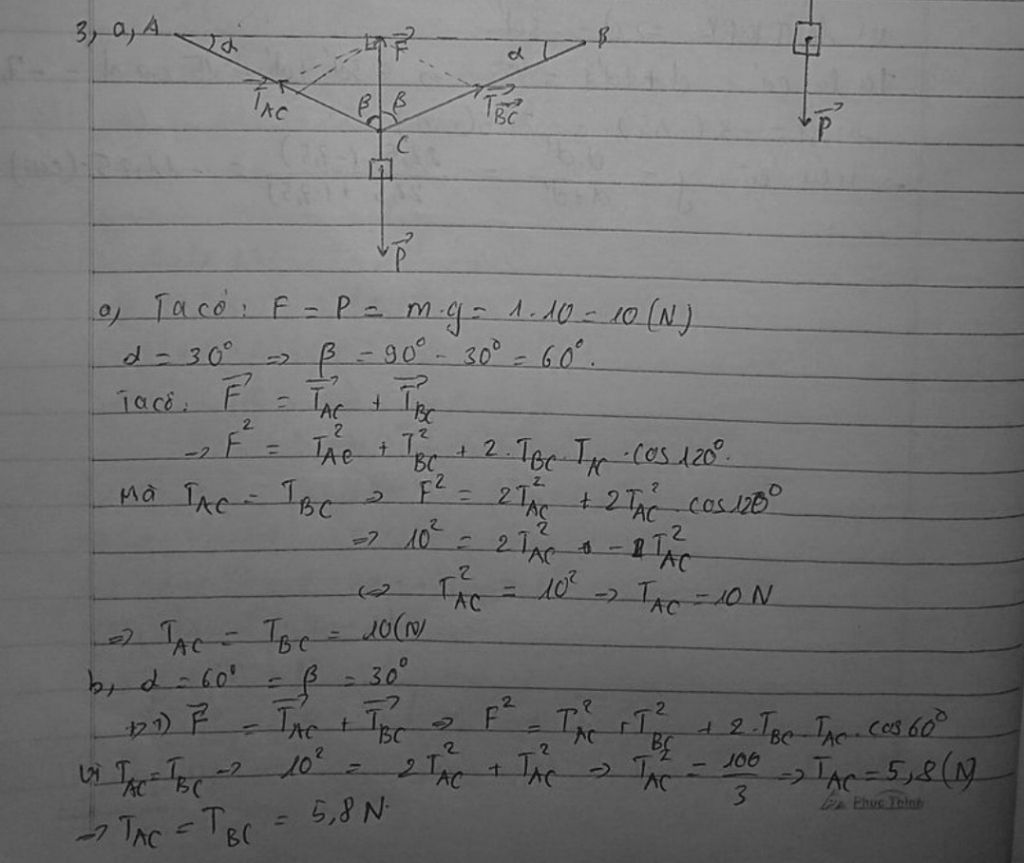 3, a, A α F⃗ α B
T⃗_AC β β T⃗_BC
C
P⃗
P⃗
a, Ta có: F = P = m.g = 1.10 = 10 (N)
α = 30° => β = 90° - 30° = 60°.
Ta có: F⃗ = T⃗_AC + T⃗_BC
-> F² = T²_AC + T²_BC + 2.T_BC.T_AC.cos120°.
Mà T_AC = T_BC => F² = 2T²_AC + 2T²_AC.cos120°
=> 10² = 2T²_AC - T²_AC
<=> T²_AC = 10² -> T_AC = 10 N
=> T_AC = T_BC = 10(N)
b, α = 60° = β = 30°
F⃗ = T⃗_AC + T⃗_BC => F² = T²_AC + T²_BC + 2.T_BC.T_AC.cos60°
Vì T_AC = T_BC -> 10² = 2T²_AC + T²_AC => T²_AC = 100/3 => T_AC = 5,8(N)
Phuc Thinh
-> T_AC = T_BC = 5,8 N.